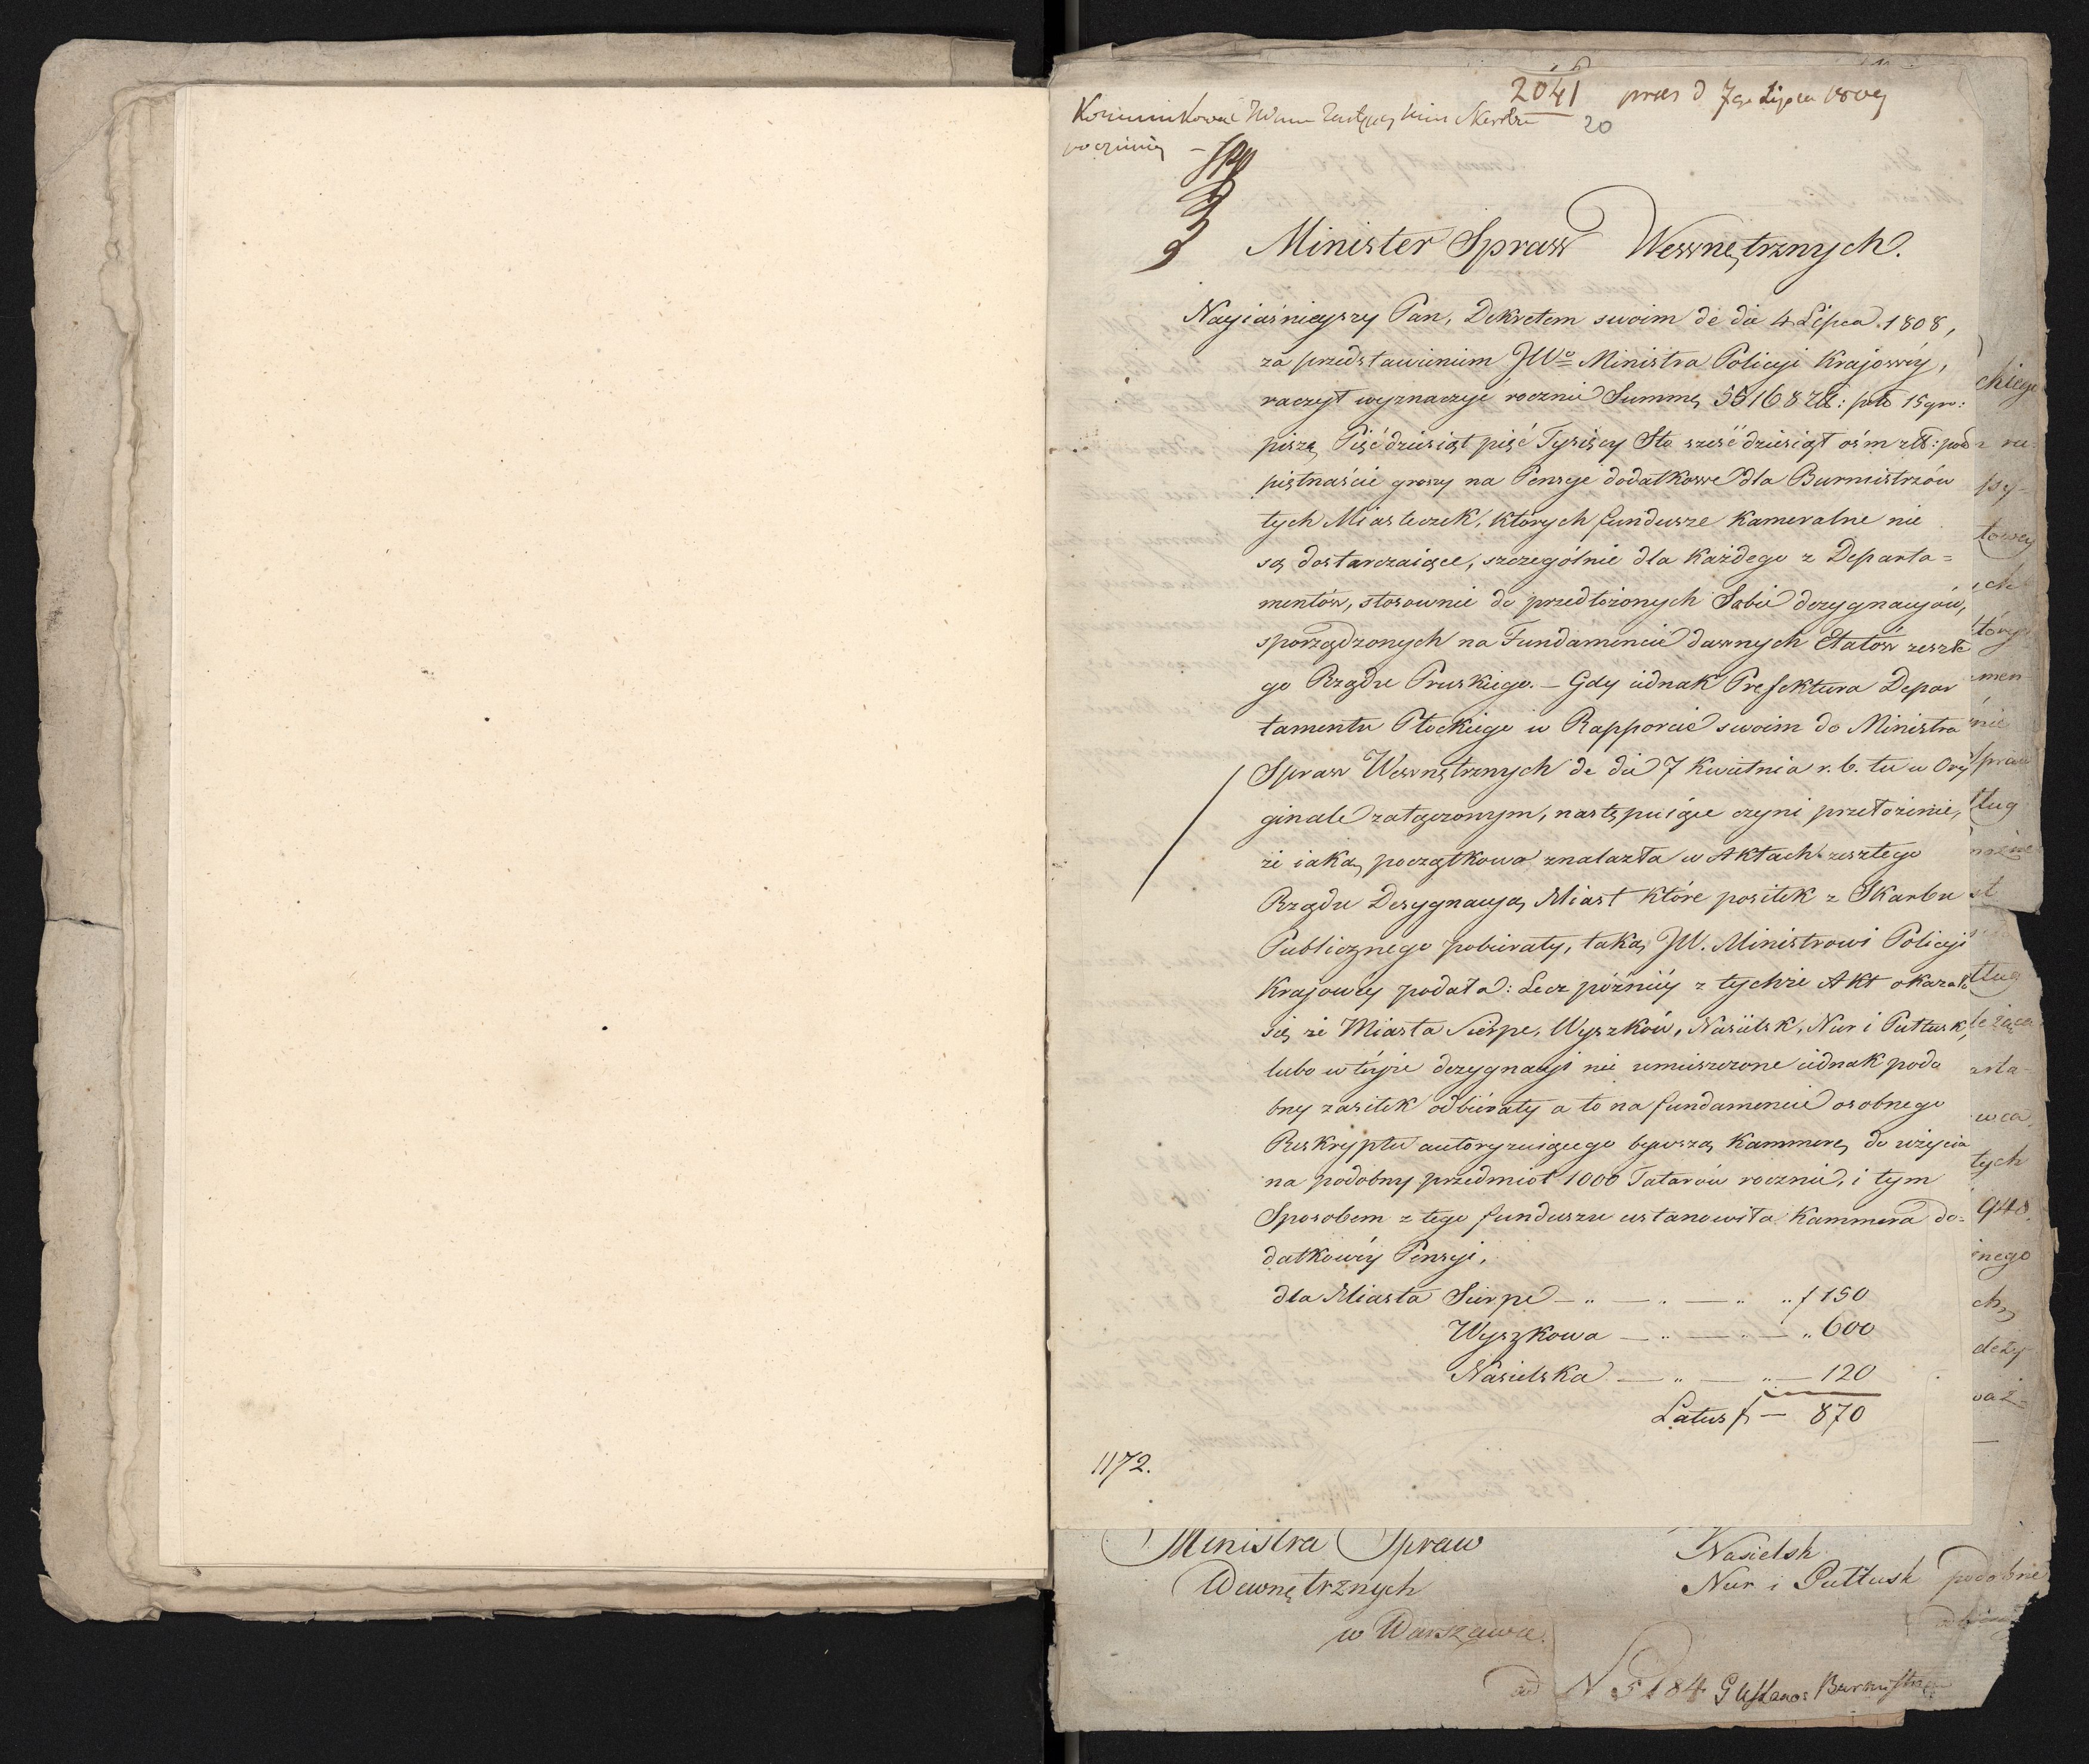 2041 præs d 7go Lipca 1809
Kommunikować
20
rocznie
Minister Spraw Wewnętrznych.
Nayiaśnieyszy Pan, Dekretem swoim de die 4 Lipca 1808,
za przedstawieniem JWo Ministra Policyi Krajowéy,
raczył wyznaczyć rocznie Summę 55168 zlł: pols 15 gro:
piszę Pięćdziesiąt pięć Tysięcy Sto sześćdziesiąt ośm złł: pols
piętnaście groszy na Pensye dodatkowe dla Burmistrzów
tych Miasteczek, których fundusze Kameralne nie
są dostarczaiące, szczególnie dla każdego z Departa=
mentów, stosownie do przedłożonych Sobie dezygnacyów,
sporządzonych na Fundamencie dawnych Etatów zeszłe
go Rządu Pruskiego. – Gdy iednak Prefektura Depar
tamentu Płockiego w Rapporcie swoim do Ministra
Spraw Wewnętrznych de die 7 Kwietnia r. b. tu w Ory
ginale załączonym, następuiące czyni przełożenie,
że iaką początkowo znalazła w Aktach zeszłego
Rządu Desygnacyą Miast które posiłek z Skarbu
Publicznego pobierały, taką JW. Ministrowi Policyi
Krajowéy podała: Lecz późniéy z tychże Akt okazało
się że Miasta Sierpc, Wyszków, Nasielsk, Nur i Pułtusk,
lubo w téyże dezygnacyi nie umieszczone iednak podo
bny zasiłek odbierały a to na fundamencie osobnego
Reskryptu autoryzuiącego bywszą Kammerę do użycia
na podobny przedmiot 1000 Talarów rocznie, i tym
Sposobem z tego funduszu ustanowiła Kammera do=
datkowéy Pensyi,
dla Miasta Sierpc — „ — „ — „ „ f 150
Wyszkowa — „ — „ — „ 600
Nasielska — „ — „ — 120
Latus f — 870
1172.
Ministra Spraw
Wewnętrznych
w Warszawie.
Nasielsk
Nur i Pułtusk podobnie
ad N 5184
chiego
tych
940.
nego